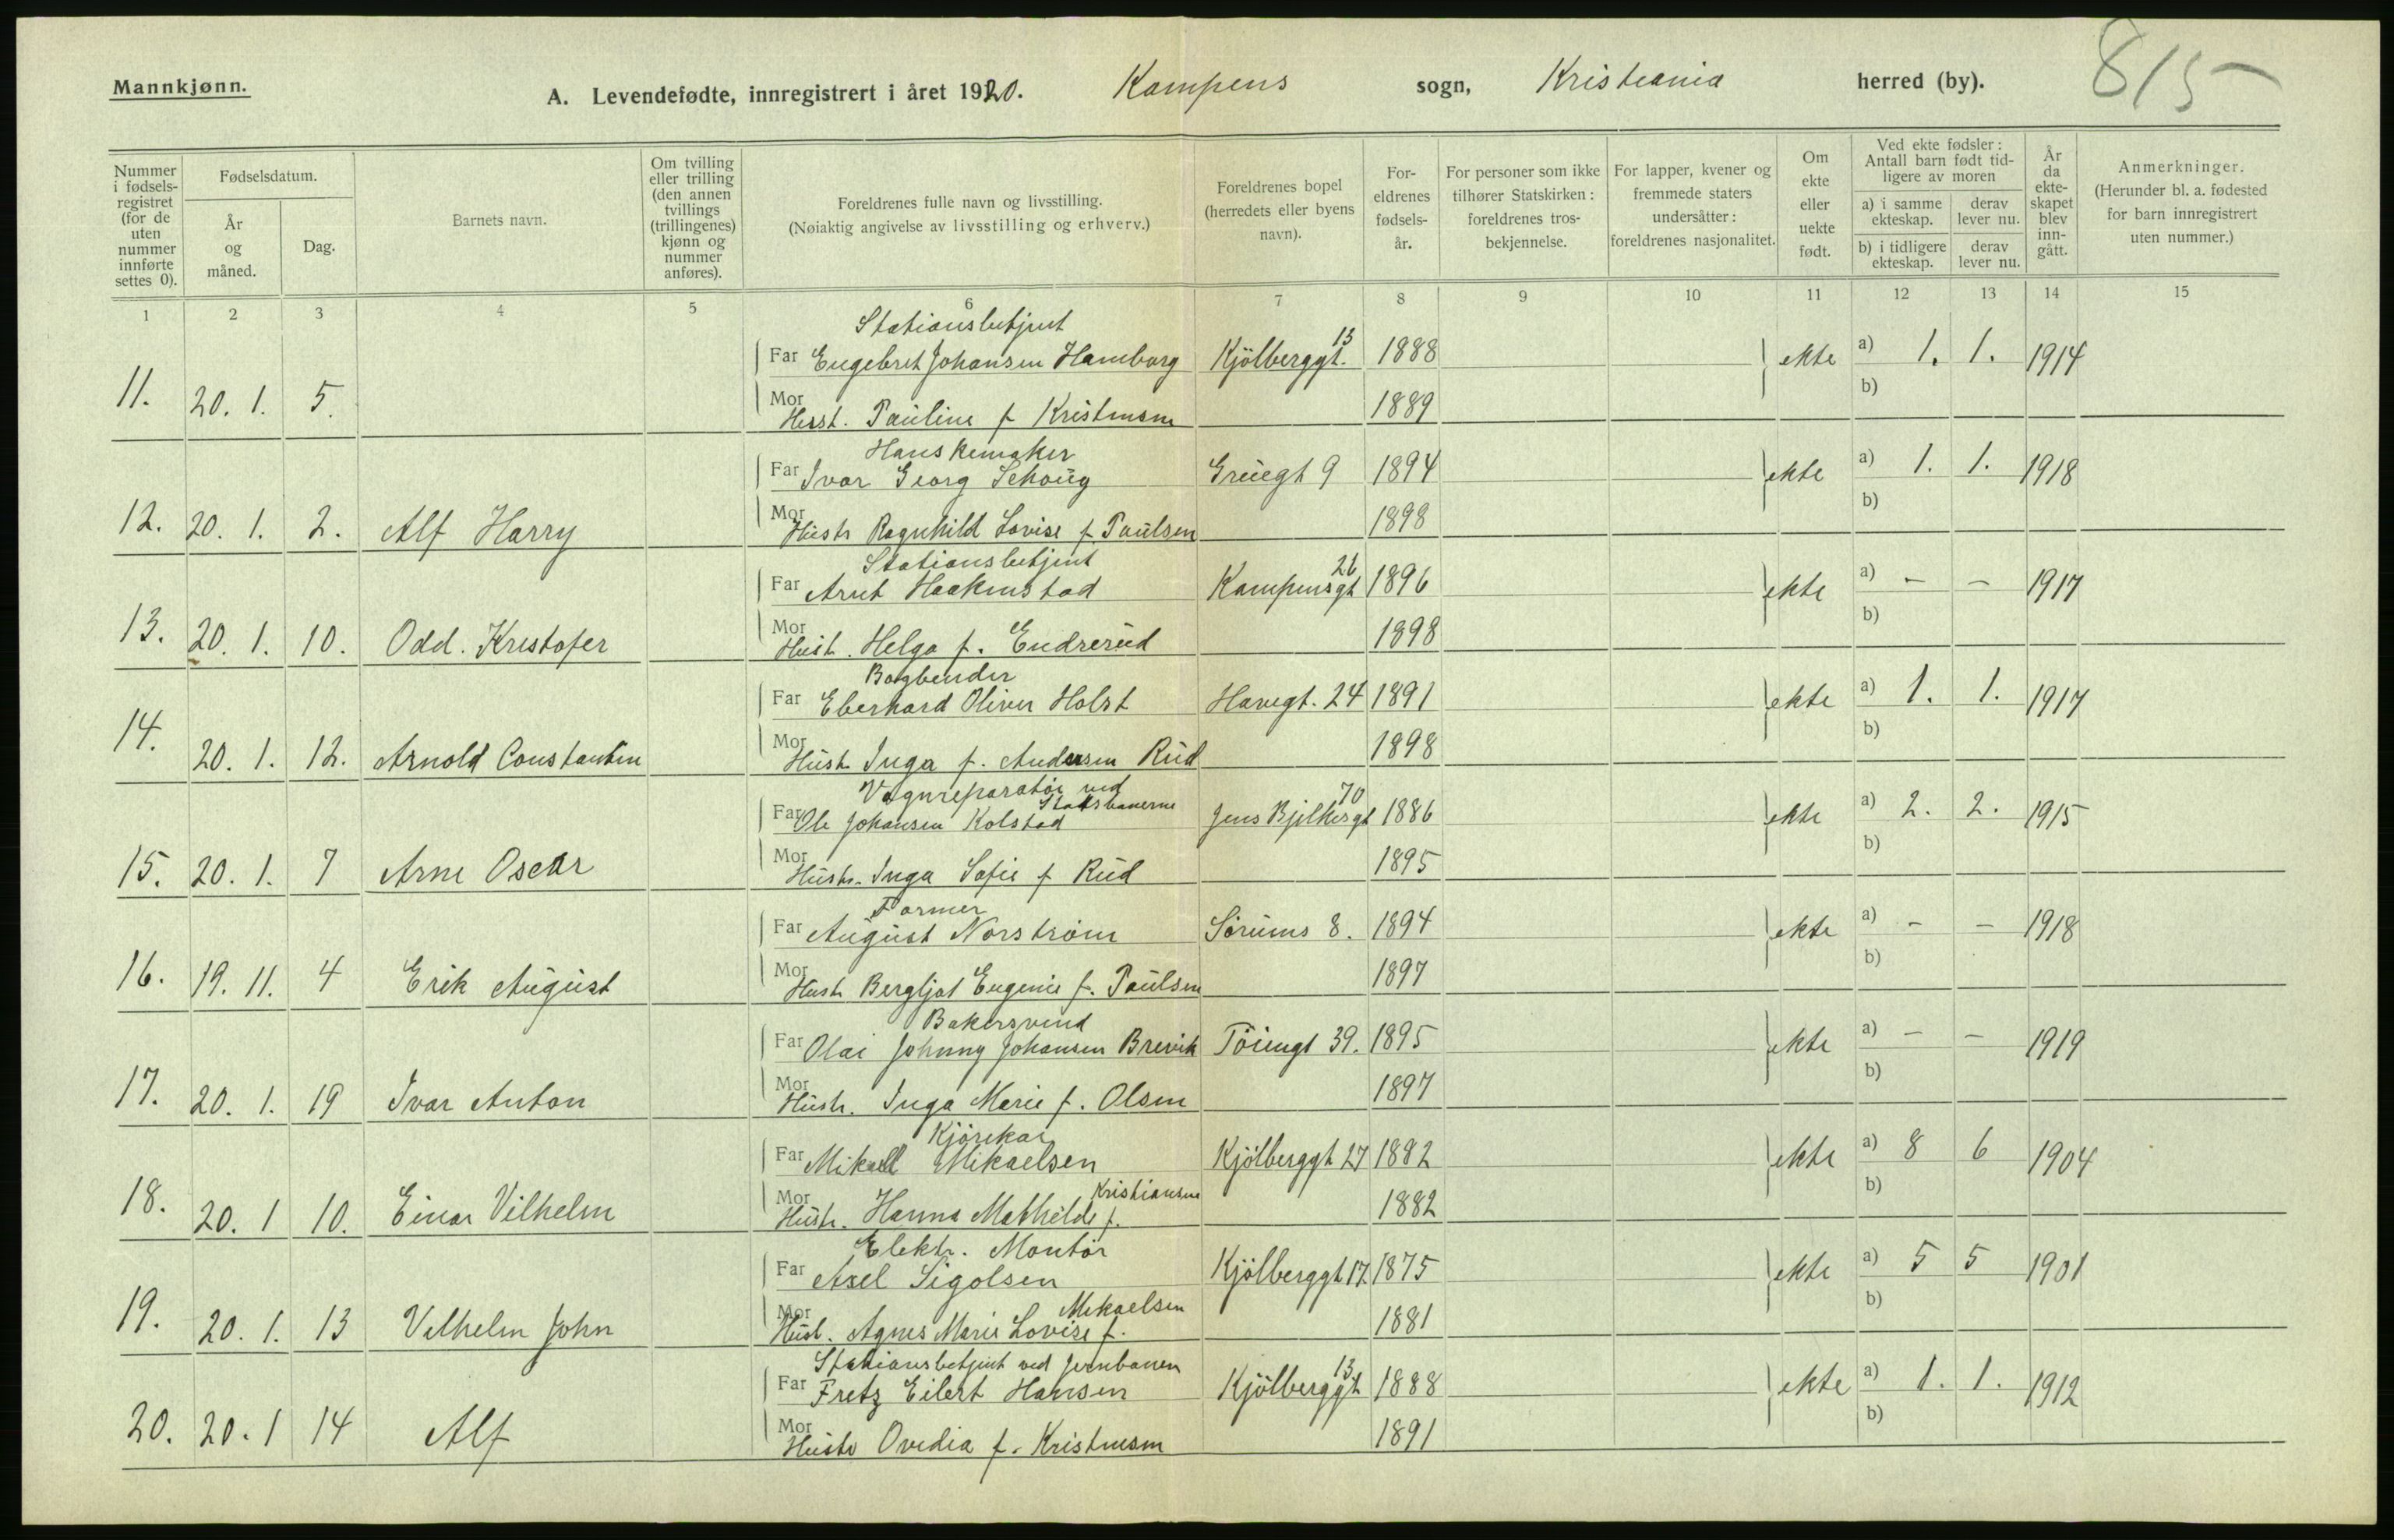 Mannkjønn.
A. Levendefødte, innregistrert i året 1920. Kampens sogn, Kristiania herred (by).
815
Nummer i fødsels-registret (for de uten nummer innførte settes 0).
Fødselsdatum.
År og måned.
Dag.
Barnets navn.
Om tvilling eller trilling (den annen tvillings (trillingenes) kjønn og nummer anføres).
Foreldrenes fulle navn og livsstilling.
(Nøiaktig angivelse av livsstilling og erhverv.)
Foreldrenes bopel (herredets eller byens navn).
For-eldrenes fødsels-år.
For personer som ikke tilhører Statskirken: foreldrenes tros-bekjennelse.
For lapper, kvener og fremmede staters undersåtter: foreldrenes nasjonalitet.
Om ekte eller uekte født.
Ved ekte fødsler: Antall barn født tid-ligere av moren
a) i samme ekteskap. derav lever nu.
b) i tidligere ekteskap. derav lever nu.
År da ekte-skapet blev inn-gått.
Anmerkninger.
(Herunder bl. a. fødested for barn innregistrert uten nummer.)
1 2 3 4 5 6 7 8 9 10 11 12 13 14 15
Stationsbetjent
Far Engebret Johansen Hamborg Kjölberggt. 13 1888 ekte a) 1. 1. 1914
11. 20. 1. 5.
Mor Hust. Pauline f Kristensen 1889 b)
Hanskemaker
Far Ivar Georg Schoug Gruegt 9 1894 ekte a) 1. 1. 1918
12. 20. 1. 2. Alf Harry
Mor Hustr Ragnhild Lovise f Paulsen 1898 b)
Stationsbetjent
Far Arnt Haakenstad Kampensgt 26 1896 ekte a) - - 1917
13. 20. 1. 10. Odd. Kristofer
Mor Hust. Helga f. Endrerud 1898 b)
Bogbinder
Far Eberhard Oliver Holst Havegt. 24 1891 ekte a) 1. 1. 1917
14. 20. 1. 12. Arnold Constantin
Mor Hust. Inga f. Andersen Rud 1898 b)
Vognreparatör ved Statsbanerne
Far Ole Johansen Kolstad Jens Bjelkesgt 70 1886 ekte a) 2. 2. 1915
15. 20. 1. 7 Arne Oscar
Mor Hustr. Inga Sofie f Rud 1895 b)
Former
Far August Norström Sörums 8. 1894 ekte a) - - 1918
16. 19. 11. 4 Erik August
Mor Hust. Bergljot Eugenie f. Paulsen 1897 b)
Bakersvend
Far Olai Johnny Johansen Brevik Töiengt 39. 1895 ekte a) - - 1919
17. 20. 1. 19 Ivar Anton
Mor Hustr. Inga Marie f. Olsen 1897 b)
Kjörekar
Far Mikael Mikaelsen Kjölberggt 27 1882 ekte a) 8 6 1904
18. 20. 1 10. Einar Vilhelm
Mor Hustr. Hanna Mathilde f. Kristiansen 1882 b)
Elektr. Montör
Far Axel Sigolsen Kjölberggt 17. 1875 ekte a) 5 5 1901
19. 20. 1. 13 Vilhelm John
Mor Hust. Agnes Marie Lovise f. Mikaelsen 1881 b)
Stationsbetjent ved jernbanen
Far Fretz Eilert Hansen Kjölberggt 13 1888 ekte a) 1. 1. 1912
20. 20. 1 14 Alf
Mor Hustr Ovedia f. Kristensen 1891 b)